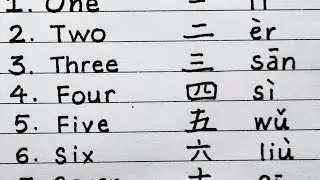 1. One 一
2. Two 二 èr
3. Three 三 sān
4. Four 四 sì
5. Five 五 wǔ
6. Six 六 liù